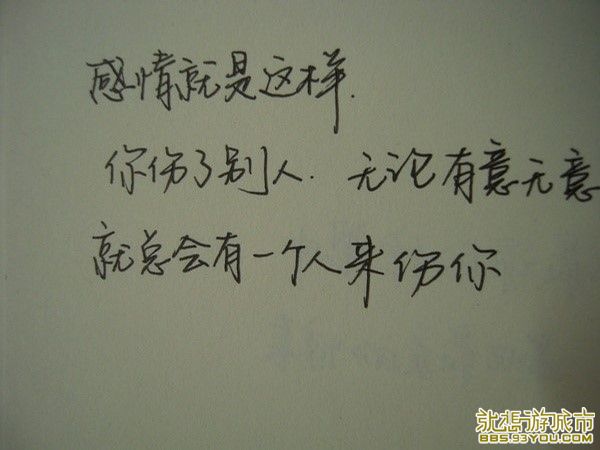 感情就是这样.
你伤了别人. 无论有意无意
就总会有一个人来伤你
游城市
BBS.93YOU.COM